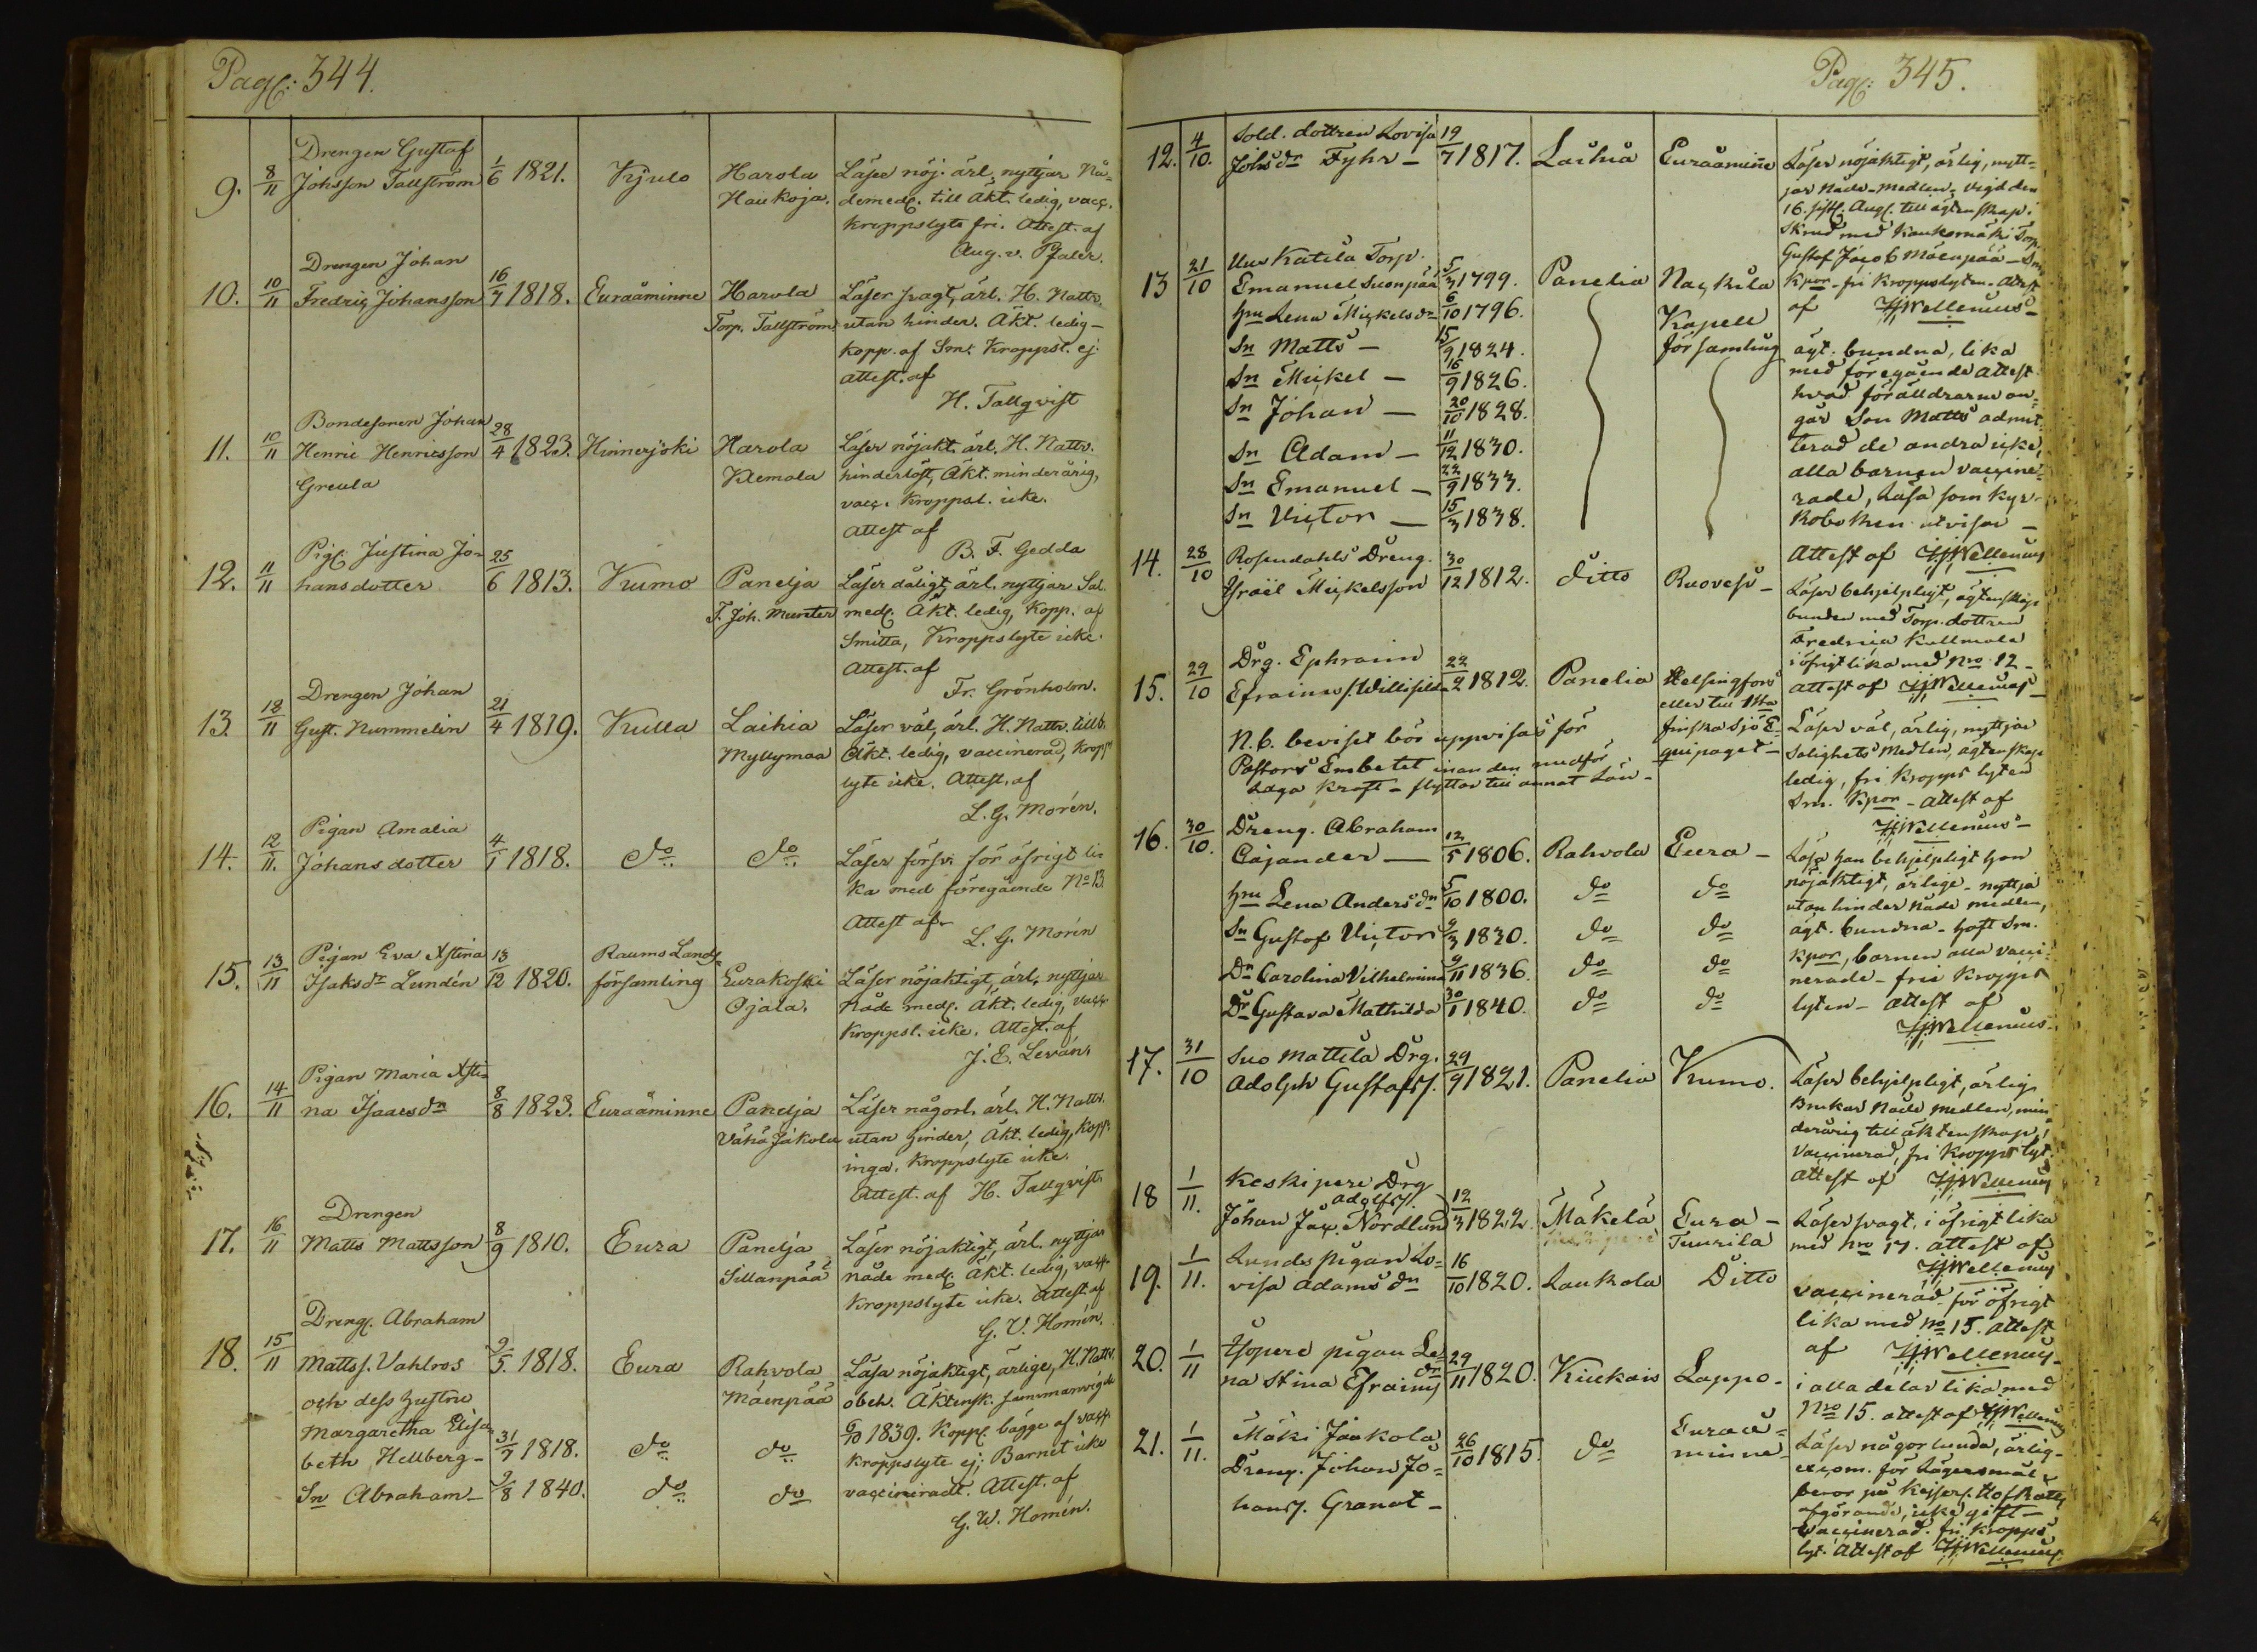 Pag: 344.
9. 8/11 Drengen Gustaf
Johsson Tallström 1/6 1821. Kjulo Harola
Haukoja.
Läser nöj. ärl. nyttjar Nå-
demed. till Äkt. ledig, vacc.
kroppslyte fri. Attest. af
Aug. v. Pfaler.
10. 10/11 Drengen Johan
Fredric Johansson 16/7 1818. Euraåminne Harola
Torp. Tallström
Läser svagt, ärl. H. Nattv.
utan hinder. Äkt. ledig –
kopp. af Sm. Kroppsl. ej
attest. af
H. Tallqvist
11. 10/11 Bondesonen Johan
Henric Henricsson
Greula 28/4 1823. Hinnerjoki Harola
Klemola
Läser nöjakt. ärl. H. Nattv.
hinderlöst, Äkt. minderårig,
vacc. Kroppsl. icke.
Attest af
B. F. Gedda
12. 11/11 Pig. Justina Jo-
hansdotter 25/6 1813. Kumo Panelja
T. Joh. Munter
Läser dåligt, ärl. nyttjar Sal.
med. Äkt. ledig, Kopp. af
Smitta, Kroppslyte icke.
Attest. af
Fr. Grönholm.
13. 18/11 Drengen Johan
Gust. Nummelin 21/4 1819. Kulla Laihia
Myllymaa
Läser väl, ärl. H. Nattv. tillb.
Äkt. ledig, vaccinerad, kropps
lyte icke. Attest. af
L. G. Morén.
14. 12/11. Pigan Amalia
Johansdotter 4/1 1818. do do
Läser försv. för öfrigt li-
ka med föregående No 13
Attest af
L. G. Morén
15. 13/11 Pigan Eva Stina
Isaksdr Lundén 13/12 1820. Raumo Lands
församling Eurakoski
Ojala.
Läser nöjaktigt, ärl. nyttjar
Nåde med. Äkt. ledig, vacc.
Kroppsl. icke. Attest. af
J. E. Leván.
16. 14/11 Pigan Maria Sti-
na Isaacsdr 8/8 1823. Euraåminne Panelja
Vähä Jakola
Läser någorl. ärl. H. Nattv.
utan hinder, Äkt. ledig, kopp.
inga. Kroppslyte icke.
Attest. af H. Tallqvist.
17. 16/11 Drengen
Matts Mattsson 8/9 1810. Eura Panelja
Sillanpää
Läser nöjaktigt, ärl. nyttjar
nåde med. Äkt. ledig, vacc.
Kroppslyte icke. Attest. af
G. V. Homén.
18. 15/11 Dreng. Abraham
Matts. Vahlros 2/5. 1818. Eura Rahvola
Mäenpää
och dess hustru
Margaretha Elisa-
beth Hellberg – 31/7 1818. do do
Sn Abraham – 2/8 1840. do do
Läsa nöjaktigt, ärlige, H. Nattv.
obeh. Äktensk. sammanvigde
6/10 1839. Kopp. bägge af vacc.
Kroppslyte ej; Barnet icke
vaccineradt. Attest. af
G. W. Homén.
Pag: 345.
12. 4/10. Sold. dottren Lovisa
Johsdr Fyhr – 19/7 1817. Laihia Euraåminne
Läser nöjaktigt, ärlig, nytt-
jar Nåde-medlen, vigd den
16. sistl. Aug. till ägtenskap.
Gustaf Jacob Mäenpää –
Kpor – fri Kroppslyten. Attest
af HjWellenius
13 21/10 Uus Katila Torp.
Emanuel Suonpää 5/3 1799. Panelia Nackila
Kapell
församling
hm Lena Mickelsdr 6/10 1796.
Sn Matts – 15/9 1824.
Sn Mickel – 16/9 1826.
Sn Johan – 20/10 1828.
Sn Adam – 11/12 1830.
Sn Emanuel – 22/9 1833.
Sn Victor – 15/3 1838.
ägt. bundna, lika
med föregående attest
hvad föräldrarne an-
går Son Matts admit-
terad de andra icke,
alla barnen vaccine-
rade, Läsa som kyr-
koboken utvisar –
Attest af HjWellenius
14. 28/10 Rosendahls Dreng.
Israël Mickelsson 30/12 1812. ditto Ruovesi –
Läser behjelpligt, ägtenskaps
bunden med Torp. dottren
Fredrica Kullmala
i öfrigt lika med Nro 12 –
attest af HjWellenius
15. 29/10 Drg. Ephraim
Efraims s. 22/2 1812. Panelia Helsingfors
eller till 1sta
finska sjö E-
quipaget –
N.b. beviset bör uppvisas för
Pastors Embetet innan den medför
Laga kraft – flyttar till annat Län –
Läser väl, ärlig, nyttjar
Salighets medlen, ägtenskaps
ledig, fri Kropps lyten
Sm. Kpor – attest af
HjWellenius
16. 30/10. Dreng. Abraham
Cajander – 12/5 1806. Rahvola Eura –
hm Lena Andersdr 5/10 1800. do do
Sn Gustaf Victor 9/3 1830. do do
Dr Carolina Vilhelmina 9/11 1836. do do
Dr Gustava Mathilda 30/1 1840. do do
Läsa han behjelpligt hon
nöjaktigt, ärlige – nyttja
utan hinder nåde medlen,
ägt. bundna – haft Sm.
Kpor, barnen alla vacci-
nerade – frie kropps
lyten – attest af
HjWellenius
17. 31/10 Suo Mattila Drg.
Adolph Gustafss. 29/9 1821. Panelia Kumo.
Läser behjelpligt, ärlig
Brukar Nåde medlen, min-
derårig till äktenskap,
Vaccinerad, fri kropps lyt.
Attest af HjWellenius
18 1/11. Keskipere Drg
Johan Jac. Adolfss. Nordlund 12/3 1822. Mäkelä Eura –
Tuurila
Läser svagt, i öfrigt lika
med Nro 17. attest af
HjWellenius
19. 1/11. Lunds pigan Lo-
visa Adamsdr 16/10 1820. Laukola Ditto
vaccinerad för öfrigt
lika med No 15. attest
af HjWellenius
20. 1/11 pigan Le-
na Stina Efraimsdr 29/11 1820. Kiukais Lappo –
i alla delar lika med
Nro 15. attest af HjWellenius
21. 1/11. Mäki Jaakola
Dreng. Johan Jo-
hans. Granat – 26/10 1815. do Euraå-
minne –
Läser någorlunda, ärlig –
excom. för Lägersmål
beror på Kejserl. Hof Rätts
afgörande, icke gift –
Vaccinerad. fri kropps
lyt. Attest af HjWellenius